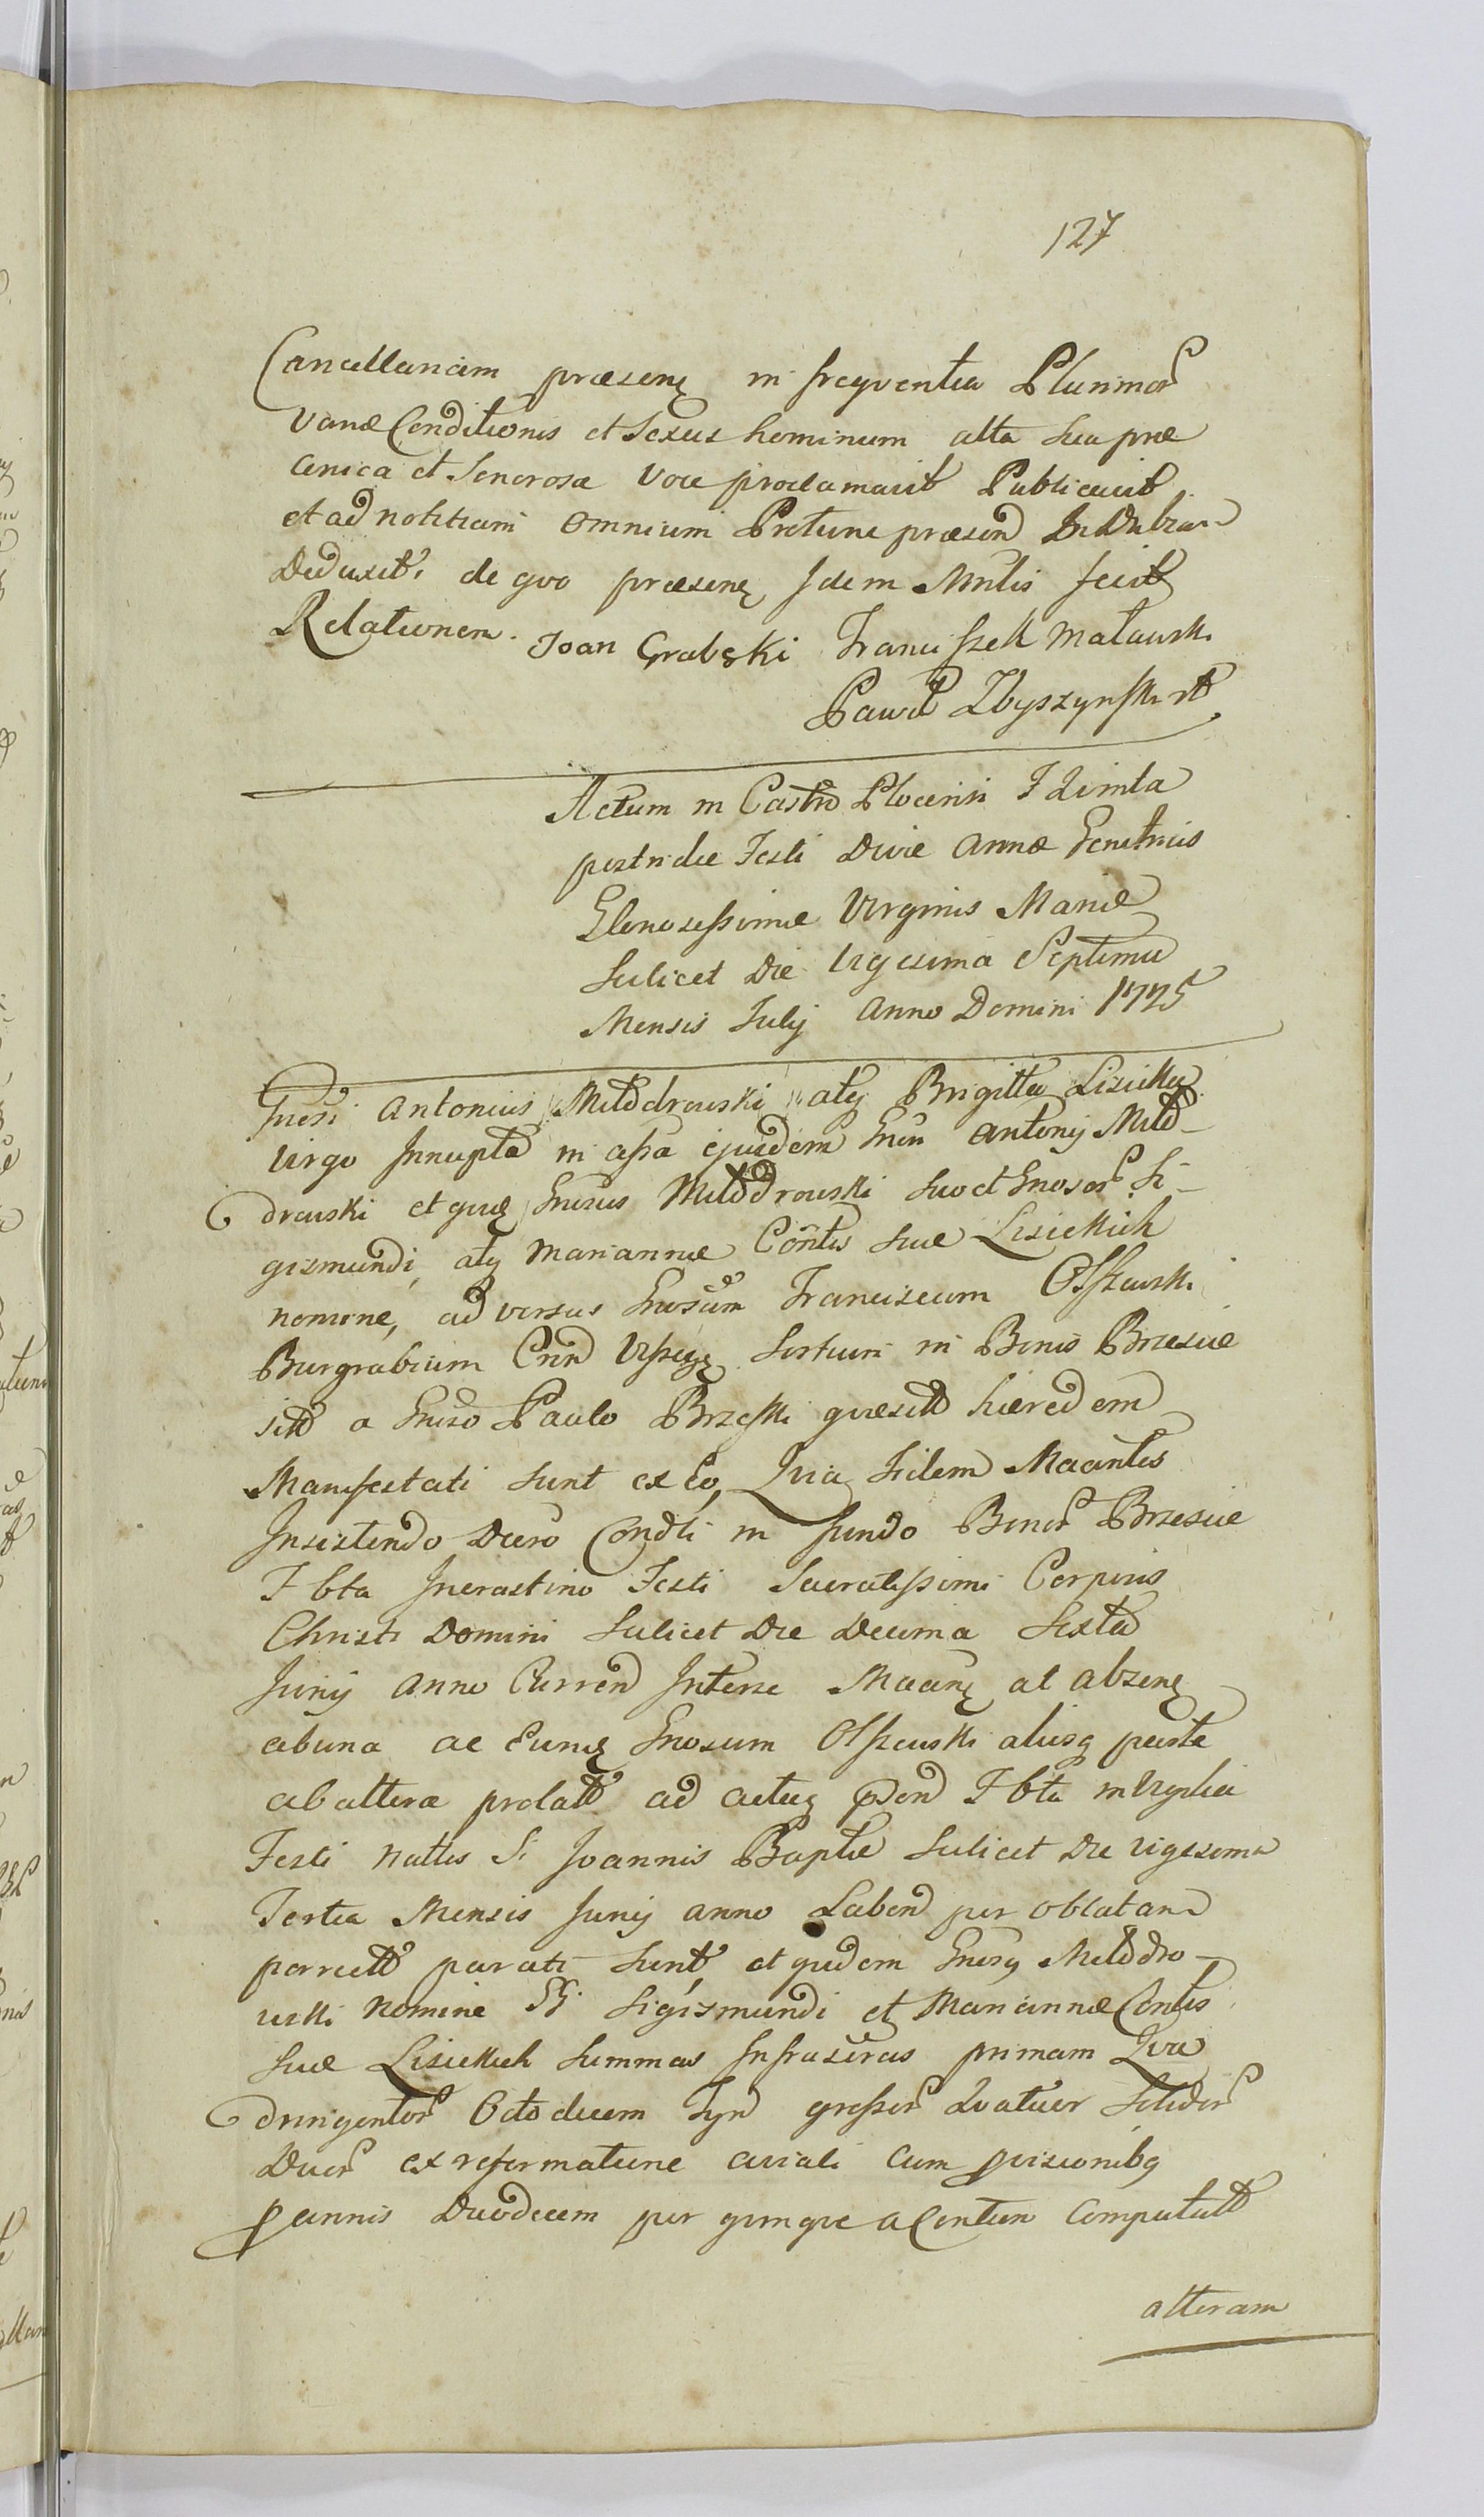 127
Cancellariam praesens in frequentia Plurimor
Variae Conditionis et Sexus hominum alta sua prae
conica et Sonorosa Voce proclamavit Publicavit
et ad notitiam omnium Protunc praesen Indubiam
Deduxit, de quo praesens Idem Mnlis fecit
Relationem. Joan Grabski Franciszek Małowski
Paweł Zbyszynski
Actum in Castro Plocensi F
postridie Festi Divae Annae Genitricis
Gloriosissimae Virginis Mariae
Scilicet Die Vigesima Septima
Mensis Julij Anno Domini 1775
Gnosi Antonius Miłodrowski atq Brigitta Lisicka
Virgo Innupta in assa ejusdem Gnosi Antonij Miło-
drowski et quidem Gnosus Miłodrowski suo et Gnosor Si-
gismundi, atq Mariannae Contis suae Lisickich
nomine, adversus Gnosum Franciscum Olszewski
Burgrabium Cnn sortium in Bonis Brzescie
sitt a Gnoso Paulo Brzeski quaesitt haeredem
Manifestati sunt ex Eo, Quia Iidem Maantes
Insistendo Decreto Condli in fundo Bonor Brzescie
F bta Incrastino Festi Sacratissimi Corporis
Christi Domini Scilicet Die Decima Sexta
Junij Anno Curren Interse Maans et absens
ab una ac Eunde Gnosum Olszewski aliisq parte
ab altera prolatt ad actus F bta in Vigilia
Festi Nattis S. Joannis Baptae Scilicet Die Vigesima
Tertia Mensis Junij anno Laben per oblatam
porrectt parati sunt, et quidem Gnosus Miłodro-
wski Nomine Sigismundi et Mariannae Contis
suae Lisickich Summas Infrascras primam Qua
dringentor Octodecem Tyn grossor Quatuor Solidor
Duor ex reformatione aviali cum provisionibq
p annis Duodecem per quinque a Centum Computatt
alteram